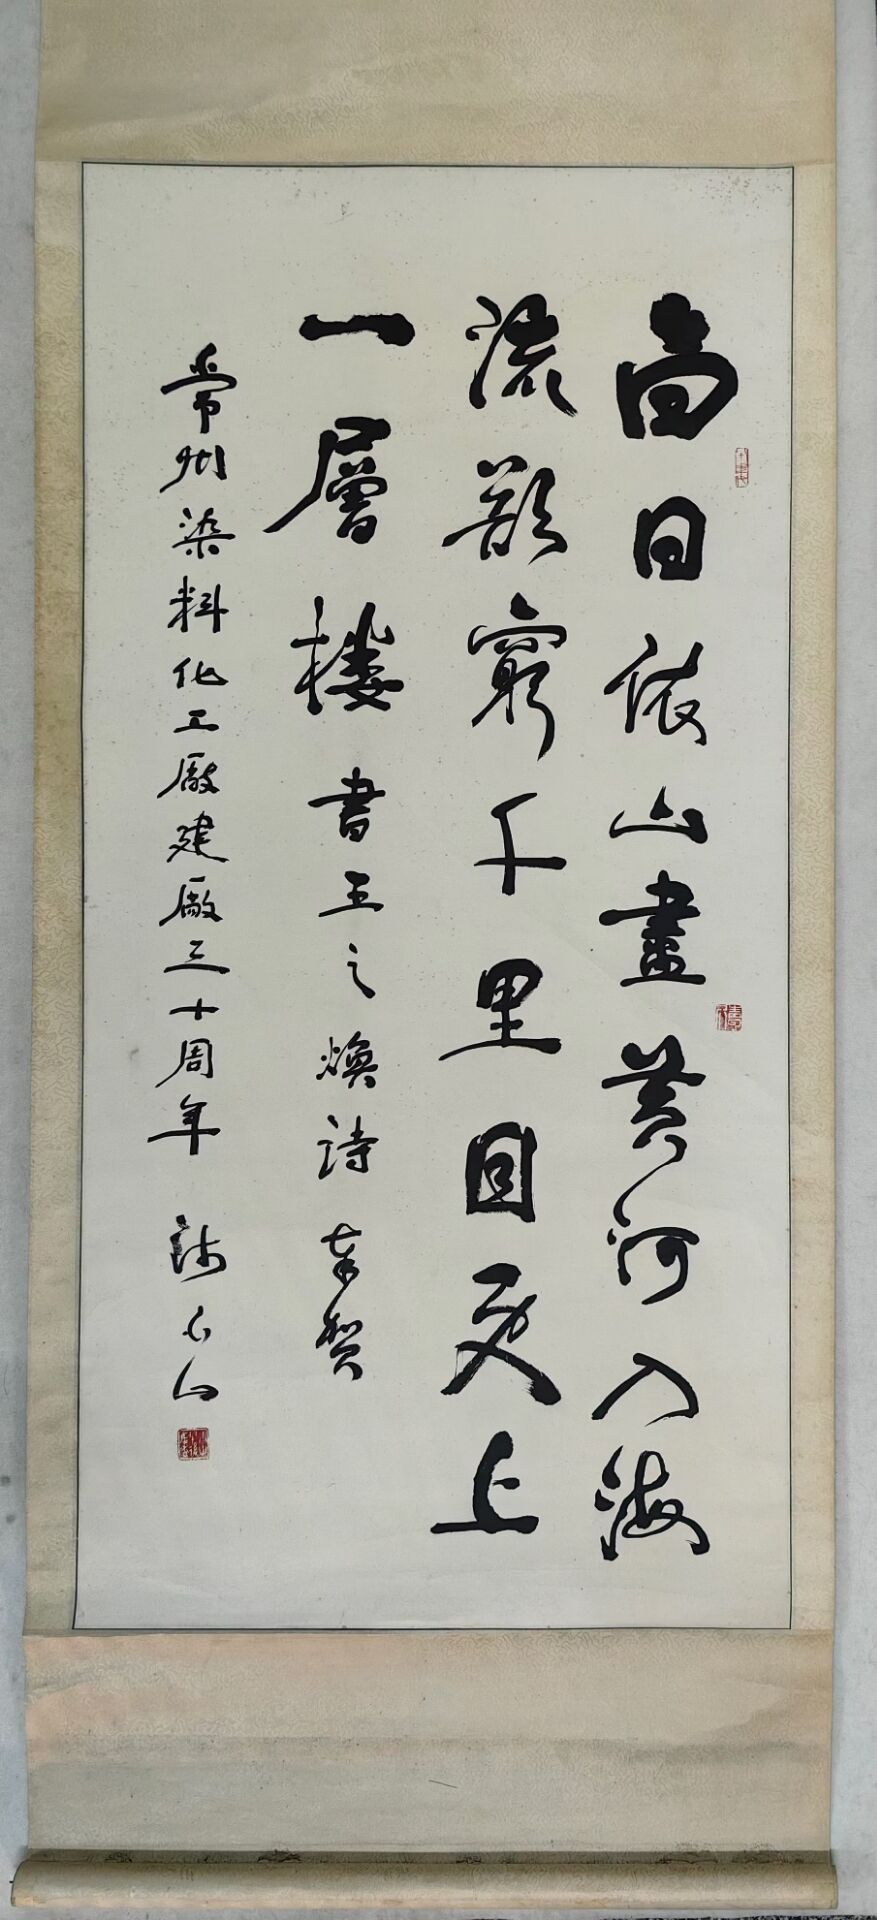 白日依山盡黄河入海
流欲窮千里目更上
一層楼書王之煥詩奉賀
常州染料化工廠建廠三十周年 钱小山